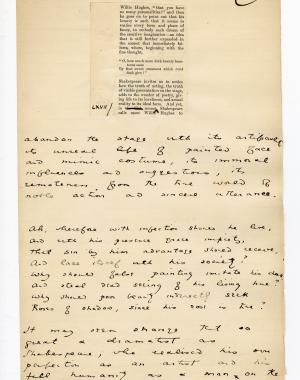 Willie Hughes, "that you have
so many personalities?" and then
he goes on to point out that his
beauty is such that it seems to
realise every form and phase of
fancy, to embody each dream of
the creative imagination—an idea
that is still further expanded in
the sonnet that immediately fol-
lows, where, beginning with the
fine thought,
"O, how much more doth beauty beau-
teous seem
By that sweet ornament which truth
doth give!"
Shakespeare invites us to notice
how the truth of acting, the truth
of visible presentation on the stage,
adds to the wonder of poetry, giv-
ing life to its loveliness, and actual
reality to its ideal form. And yet,
in Sonnet Shakespeare
calls upon Willie Hughes to
LXVII /
abandon the stage with its artificiality,
its unreal life of painted face
and mimic costume, its immoral
influences and suggestions, its
remoteness from the true world of
noble action and sincere utterance.
Ah, therefore with infection should he live,
And with his presence grace impiety,
That sin by him advantage should receive,
And lace itself with his society?
Why should false painting imitate his cheek,
And steal dead seeing of his living hue?
Why should poor beauty indirectly seek
Roses of shadow, since his rose is true?
It may seem strange that so
great a dramatist as
Shakespeare, who realised his own
perfection as an artist and his
full humanity as a man on the